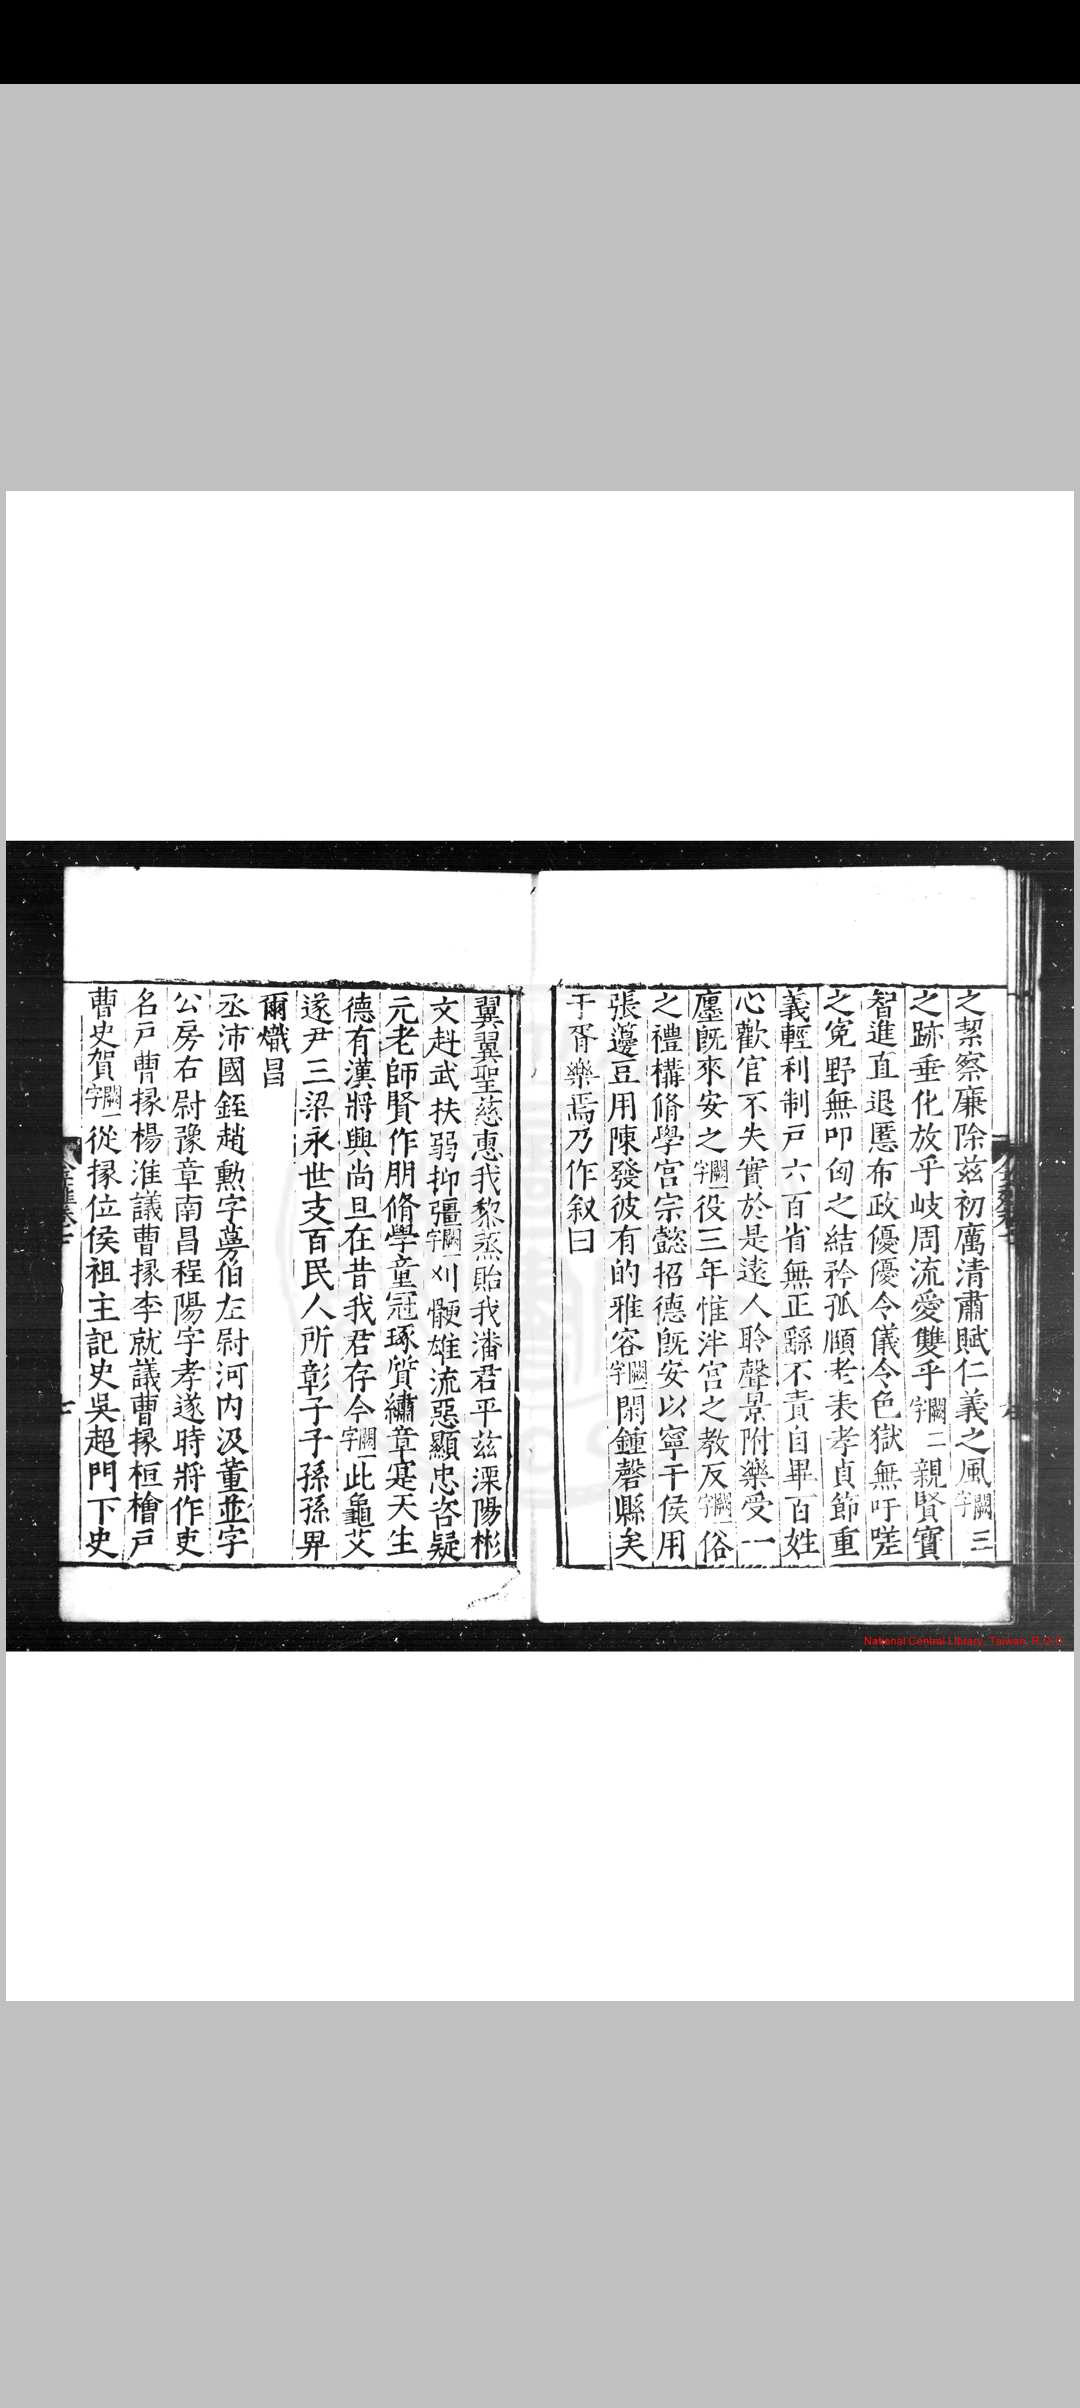 之絜察廉除兹初厲清肅賦仁義之風闕三字
之跡垂化放乎岐周流愛雙乎闕二字親賢寶
智進直退慝布政優優令儀令色獄無吁嗟
之冤野無叩匃之結矜孤頤老表孝貞節重
義輕利制戸六百省無正繇不責自畢百姓
心歡官不失實於是遠人聆聲景附樂受一
廛旣來安之闕一字役三年惟泮宫之教反闕一字俗
之禮構脩學宫宗懿招德旣安以寧干侯用
張邊豆用陳發彼有的雅容闕一字閑鍾磬縣矣
于胥樂焉乃作叙曰
翼翼聖慈惠我黎蒸貽我潘君平兹溧陽彬
文赳武扶弱抑彊闕一字刈骾雄流惡顯忠咨疑
元老師賢作朋脩學童冠琢質繡章寔天生
德有漢將興尚旦在昔我君存今闕一字此龜艾
遂尹三梁永世支百民人所彰子子孫孫畀
爾熾昌
丞沛國銍趙勲字蔓伯左尉河内汲董並字
公房右尉豫章南昌程陽字孝遂時將作吏
名戸曹掾楊淮議曹掾李就議曹掾桓檜戸
曹史賀闕一字從掾位侯祖主記史吳超門下史
National Central Library, Taiwan, R.O.C